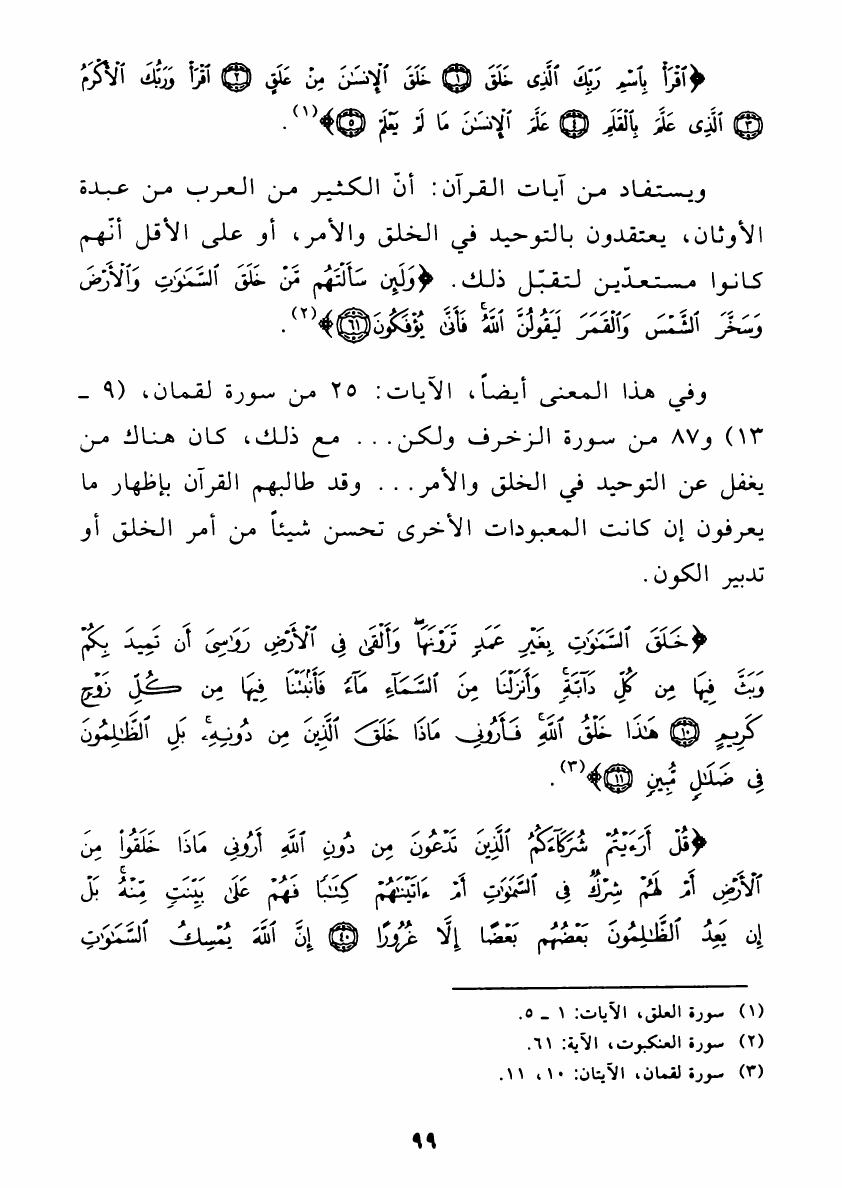 ﴿ٱقْرَأْ بِٱسْمِ رَبِّكَ ٱلَّذِى خَلَقَ ۝١ خَلَقَ ٱلْإِنسَـٰنَ مِنْ عَلَقٍ ۝٢ ٱقْرَأْ وَرَبُّكَ ٱلْأَكْرَمُ
۝٣ ٱلَّذِى عَلَّمَ بِٱلْقَلَمِ ۝٤ عَلَّمَ ٱلْإِنسَـٰنَ مَا لَمْ يَعْلَمْ ۝٥﴾(١).
ويستفاد من آيات القرآن: أنّ الكثير من العرب من عبدة
الأوثان، يعتقدون بالتوحيد في الخلق والأمر، أو على الأقل أنّهم
كانوا مستعدّين لتقبّل ذلك. ﴿وَلَئِن سَأَلْتَهُم مَّنْ خَلَقَ ٱلسَّمَـٰوَٰتِ وَٱلْأَرْضَ
وَسَخَّرَ ٱلشَّمْسَ وَٱلْقَمَرَ لَيَقُولُنَّ ٱللَّهُ ۖ فَأَنَّىٰ يُؤْفَكُونَ ۝٦١﴾(٢).
وفي هذا المعنى أيضاً، الآيات: ٢٥ من سورة لقمان، (٩ ـ
١٣) و٨٧ من سورة الزخرف ولكن... مع ذلك، كان هناك من
يغفل عن التوحيد في الخلق والأمر... وقد طالبهم القرآن بإظهار ما
يعرفون إن كانت المعبودات الأخرى تحسن شيئاً من أمر الخلق أو
تدبير الكون.
﴿خَلَقَ ٱلسَّمَـٰوَٰتِ بِغَيْرِ عَمَدٍ تَرَوْنَهَا ۖ وَأَلْقَىٰ فِى ٱلْأَرْضِ رَوَٰسِىَ أَن تَمِيدَ بِكُمْ
وَبَثَّ فِيهَا مِن كُلِّ دَآبَّةٍ ۚ وَأَنزَلْنَا مِنَ ٱلسَّمَآءِ مَآءً فَأَنۢبَتْنَا فِيهَا مِن كُلِّ زَوْجٍ
كَرِيمٍ ۝١٠ هَـٰذَا خَلْقُ ٱللَّهِ فَأَرُونِى مَاذَا خَلَقَ ٱلَّذِينَ مِن دُونِهِۦ ۚ بَلِ ٱلظَّـٰلِمُونَ
فِى ضَلَـٰلٍ مُّبِينٍ ۝١١﴾(٣).
﴿قُلْ أَرَءَيْتُمْ شُرَكَآءَكُمُ ٱلَّذِينَ تَدْعُونَ مِن دُونِ ٱللَّهِ أَرُونِى مَاذَا خَلَقُوا۟ مِنَ
ٱلْأَرْضِ أَمْ لَهُمْ شِرْكٌ فِى ٱلسَّمَـٰوَٰتِ أَمْ ءَاتَيْنَـٰهُمْ كِتَـٰبًا فَهُمْ عَلَىٰ بَيِّنَتٍ مِّنْهُ ۚ بَلْ
إِن يَعِدُ ٱلظَّـٰلِمُونَ بَعْضُهُم بَعْضًا إِلَّا غُرُورًا ۝٤٠ إِنَّ ٱللَّهَ يُمْسِكُ ٱلسَّمَـٰوَٰتِ
(١) سورة العلق، الآيات: ١ ـ ٥.
(٢) سورة العنكبوت، الآية: ٦١.
(٣) سورة لقمان، الآيتان: ١٠، ١١.
٩٩